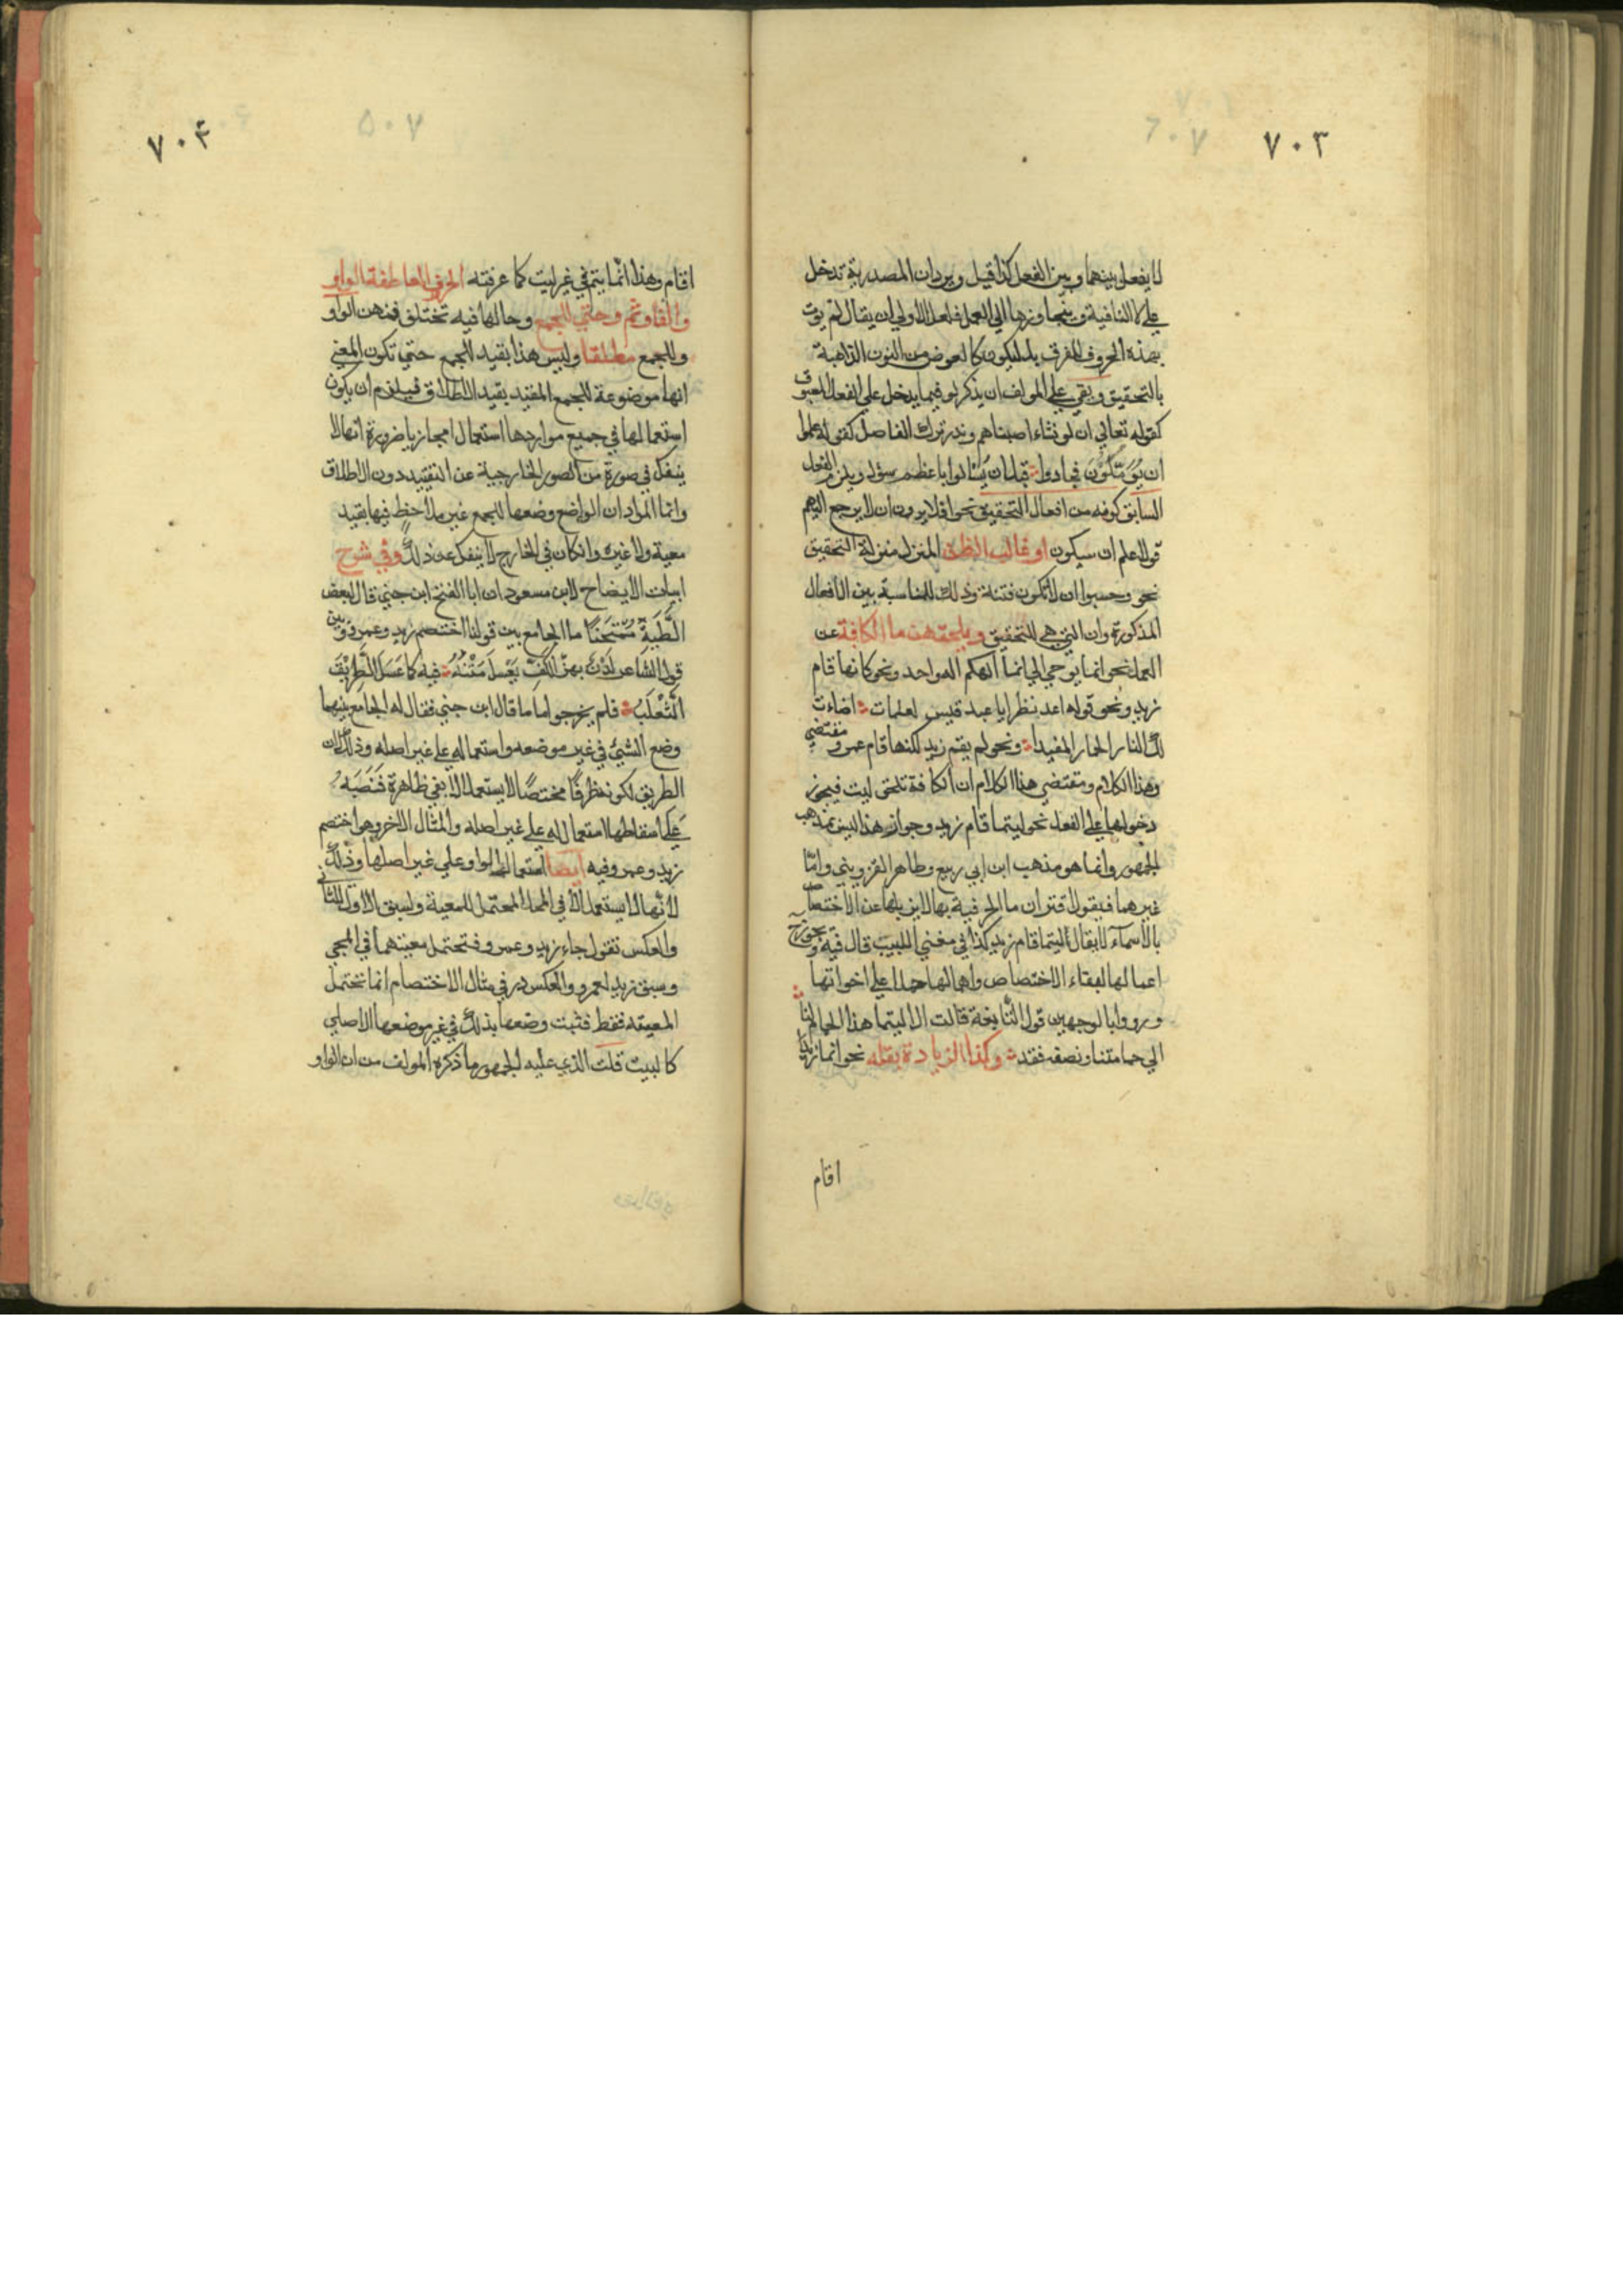 ٧٠٣
لا يفعل بينها وبين الفعل كذا قيل ويرد ان المصدرية تدخل
على لا النافية ويتجاوزها الى العمل فلعل الاولى ان يقال لم يؤت
بهذه الحروف للفرق بل ليكون كالعوض من النون الذاهبة
بالتحقيق وبقى على المولف ان يذكر لو فيما يدخل على الفعل المسبوق
كقوله تعالى ان لو نشاء اصبناهم وندر ترك الفاصل كقوله علموا
ان يُؤَمَّلُونَ فجادوا قبل ان يُسْالوا باعظم سؤل ويلزم الفعل
السابق كونه من افعال التحقيق نحو افلا يرون ان لا يرجع اليهم
قولا علم ان سيكون او غالب الظن المنزل منزلة التحقيق
نحو وحسبوا ان لا تكون فتنة وذلك للمناسبة بين الافعال
المذكورة وان التي هي للتحقيق ويلحقهن ما الكافة عن
العمل نحو انما يوحى الي انما الهكم اله واحد ونحو كانما قام
زيد ونحو قوله اعد نظرا يا عبد قيس لعلمات اضاءت
لك النار الحمار المقيدا ونحو لم يقم زيد لكنما قام عمرو مقتضى
وهذا الكلام ومقتضى هذا الكلام ان الكافة تلحق ليت فيجوز
دخولها على الفعل نحو ليتما قام زيد وجواز هذا ليس بمذهب
الجمهور وانما هو مذهب ابن ابي ربيع وطاهر القزويني وامّا
غيرهما فيقول اقتران ما الحرفية بها لا يزيلها عن الاختصاص
بالاسمآء لا يقال ليتما قام زيد كذا في مغني اللبيب قال فيه ويجوز ح
اعمالها لبقاء الاختصاص واهمالها حملا على اخواتها
ورووا بالوجهين قول النابغة قالت الا ليتما هذا الحمام لنا
الى حمامتنا ونصفه فقد وكذا الزيادة بقلة نحو انما زيدا
اقام
٧٠٤
اقام وهذا انما يتم في غير ليت كما عرفته الحروف العاطفة الواو
والفا وثم وحتى للجمع وحالها فيه تختلف فمنهن الواو
وللجمع مطلقا وليس هذا بقيد للجمع حتى تكون المعنى
انها موضوعة للجمع المقيد بقيد الاطلاق فيلزم ان يكون
استعمالها في جميع مواردها استعمالا مجازيا ضرورة انها لا
ينفك في صورة من الصور الخارجية عن التقييد دون الاطلاق
وانما المراد ان الواضع وضعها للجمع غير ملاحظ فيها بقيد
معية ولا غيره وان كان في الخارج لا ينفك عن ذلك وفي شرح
ابيات الايضاح لابن مسعود ان ابا الفتح ابن جني قال لبعض
الطَّلَبَةِ مُمْتَحَنًا ما الجامع بين قولنا اختصم زيد وعمرو وبين
قول الشاعر لَدْنٌ بهزّ الكفّ يَعْسِلُ مَتْنُهُ فيه كما عَسَلَ الطَّرِيْقَ
الثَّعْلَبُ فلم يخرجوا ما قال ابن جني فقال له الجامع بينهما
وضع الشئ في غير موضعه واستعماله على غير اصله وذلك ان
الطريق لكونه ظرفًا مختصًا لا يستعمل الا بفي ظاهرة فَنَصَبَهُ
عَلى اسقاطها استعمال له على غير اصله والمثال الاخر وهو اختصم
زيد وعمرو فيه ايضا استعمال الواو على غير اصلها وذلك
لانّها لا يستعمل الا في المحل المحتمل للمعية ولسبق الاول للثاني
والعكس تقول جاء زيد وعمرو فتحتمل معيتهما في المجي
وسبق زيد لعمرو والعكس وفي مثال الاختصام انما تحتمل
المعيته فقط فثبت وضعها بذلك في غير موضعها الاصلي
كالبيت قلت الذي عليه الجمهور ما ذكره المولف من ان الواو